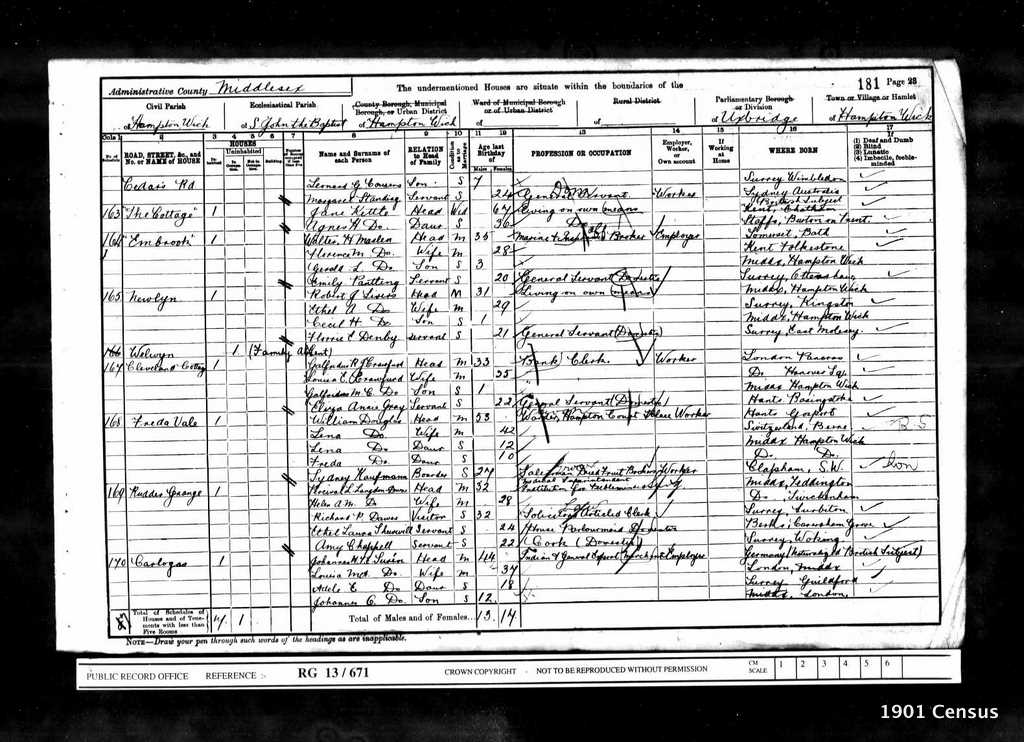 Administrative County Middlesex
The undermentioned Houses are situate within the boundaries of the
181 Page 23
Civil Parish
of Hampton Wick
Ecclesiastical Parish
of S John the Baptist
County Borough, Municipal Borough, or Urban District
of Hampton Wick
Ward of Municipal Borough or of Urban District
of
Rural District
of
Parliamentary Borough or Division
of Uxbridge
Town or Village or Hamlet
of Hampton Wick
Cols 1 2 3 4 5 6 7 8 9 10 11 12 13 14 15 16 17
No. of Schedule
ROAD, STREET, &c., and No. or NAME of HOUSE
HOUSES
Inhabited
Uninhabited
In Occupation
Not in Occupation
Building
Name and Surname of each Person
RELATION to Head of Family
Condition as to Marriage
Age last Birthday of
Males Females
PROFESSION OR OCCUPATION
Employer, Worker, or Own account
If Working at Home
WHERE BORN
(1) Deaf and Dumb
(2) Blind
(3) Lunatic
(4) Imbecile, feeble-minded
Cedars Rd Leonard G Cousens Son S 7 Surrey Wimbledon
Margaret Servant S 24 General Servant Worker Sydney Australia British Subject
163 "The Cottage" 1 Jane Kettle Head Wid 67 Living on own means Kent
Agnes H Do. Daur S 36 Do Staffs, Burton on Trent
164 Embrook 1 Walter H Maslen Head M 35 Broker Employer Somerset Bath
Florence M Do. Wife M 28 Kent Folkestone
Gerald L Do. Son S 3 Middx, Hampton Wick
Emily Servant S 20 General Servant Domestic Surrey
165 Newlyn 1 Robert J Head M 31 Living on own means Middx, Hampton Wick
Ethel A Do. Wife M 29 Surrey, Kingston
Cecil H Do. Son S 1 Middx, Hampton Wick
Florrie E Denby Servant S 21 General Servant (Domestic) Surrey East Molesey
166 Welwyn 1 (Family Absent)
167 Cleveland Cottage 1 R J Crawfurd Head M 33 Bank Clerk Worker London Pancras
Louisa E Crawfurd Wife M 35 Do. Hanover Sq.
M C Do Son S 1 Middx Hampton Wick
Eliza Annie Gray Servant S 22 General Servant (Domestic) Hants Basingstoke
168 Freda Vale 1 William Douglas Head M 53 Warder, Hampton Court Palace Worker Hants Gosport
Lena Do. Wife M 42 Switzerland, Berne B.S
Lena Do. Daur S 12 Middx Hampton Wick
Freda Do. Daur S 10 Do. Do.
Sydney Kaufmann Boarder S 27 Salesman Worker Clapham, S.W.
169 1 Langdon Down Head M 32 Medical Superintendent Institution for Middx, Teddington
Helen A M Do. Wife M 28 Do. Twickenham
Richard P. Dawes Visitor S 32 Solicitors Articled Clerk Surrey Surbiton
Ethel Laura Servant S 24 House Parlourmaid Domestic Berks, Caversham Grove
Amy Chappell Servant S 22 Cook (Domestic) Surrey Woking
170 1 Johannes Head M 44 Indian & General Export Merchant Employer Germany (Naturalized British Subject)
Louisa Do. Wife M 37 London, Middx
Adele E Do Daur S 18 Surrey Guildford
Johannes C. Do. Son S 12 Middx London
Total of Schedules of Houses and of Tenements with less than Five Rooms 7 1
Total of Males and of Females... 13 14
NOTE—Draw your pen through such words of the headings as are inapplicable.
PUBLIC RECORD OFFICE REFERENCE :- RG 13/671 CROWN COPYRIGHT - NOT TO BE REPRODUCED WITHOUT PERMISSION CM SCALE 1 2 3 4 5 6
1901 Census